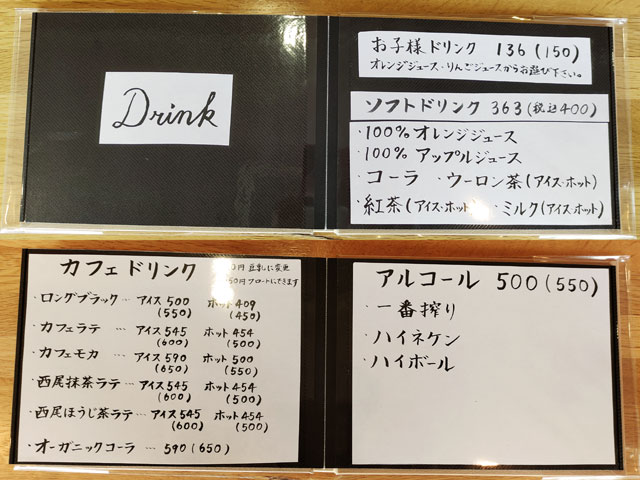 Drink
お子様ドリンク 136(150)
オレンジジュース・りんごジュースからお選び下さい。
ソフトドリンク 363(税込400)
・100% オレンジジュース
・100% アップルジュース
・コーラ ・ウーロン茶(アイス・ホット)
・紅茶(アイス・ホット) ・ミルク(アイス・ホット)
カフェドリンク
0円 豆乳に変更
50円 フロートにできます
・ロングブラック… アイス 500 ホット 409
(550) (450)
・カフェラテ … アイス 545 ホット 454
(600) (500)
・カフェモカ … アイス 590 ホット 500
(650) (550)
・西尾抹茶ラテ… アイス 545 ホット 454
(600) (500)
・西尾ほうじ茶ラテ… アイス 545 ホット 454
(600) (500)
・オーガニックコーラ … 590(650)
アルコール 500(550)
・一番搾り
・ハイネケン
・ハイボール